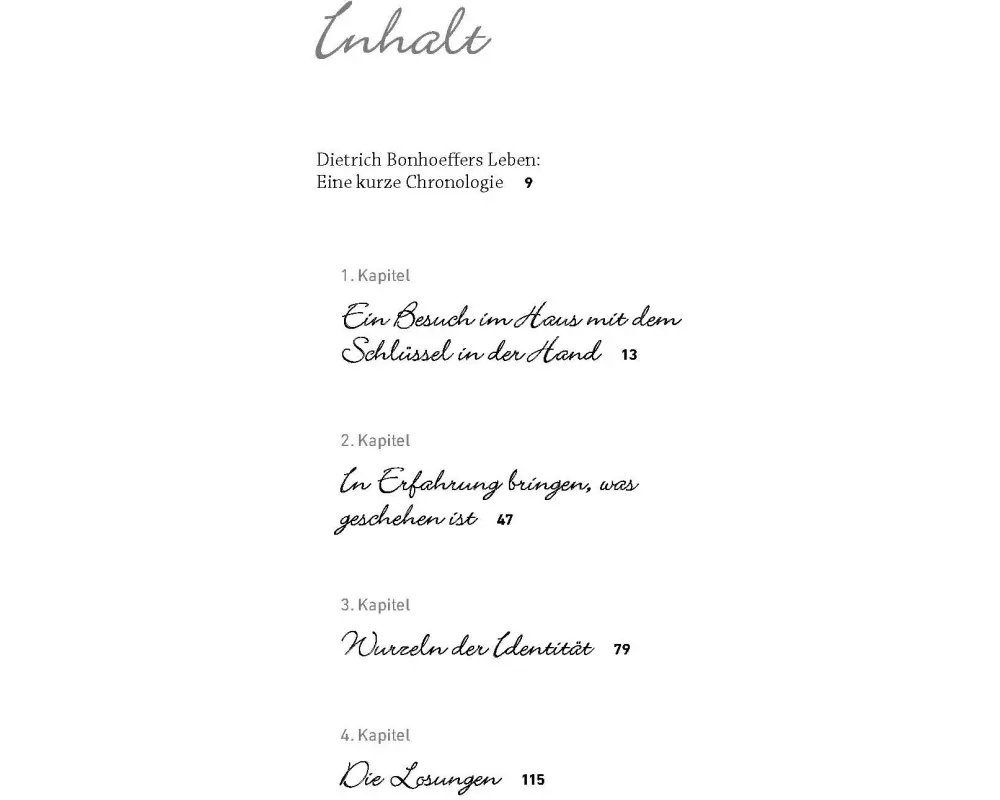 Inhalt
Dietrich Bonhoeffers Leben:
Eine kurze Chronologie 9
1. Kapitel
Ein Besuch im Haus mit dem
Schlüssel in der Hand 13
2. Kapitel
In Erfahrung bringen, was
geschehen ist 47
3. Kapitel
Wurzeln der Identität 79
4. Kapitel
Die Losungen 115